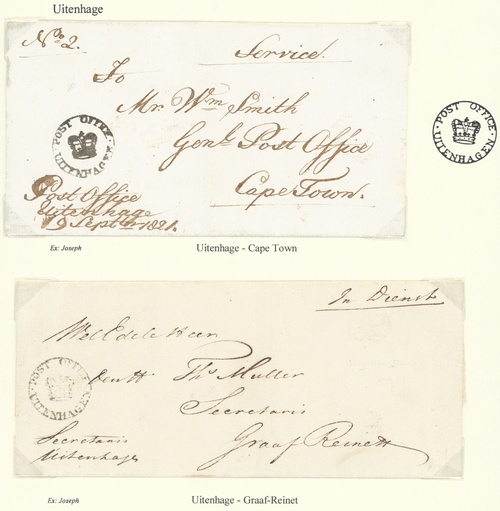 Uitenhage
No 2.
Service.
To
Mr. Wm Smith
Genl. Post Office
Cape Town.
POST OFFICE
UITENHAGEN
Post Office
Uitenhage
9 Septr 1821.
POST OFFICE
UITENHAGEN
Ex: Joseph
Uitenhage - Cape Town
In Dienst
Wel Edele Heer
den H Ths Muller
Secretaris
Graaf Reinett
POST OFFICE
UITENHAGEN
Secretaris
Uitenhage
Ex: Joseph
Uitenhage - Graaf-Reinet